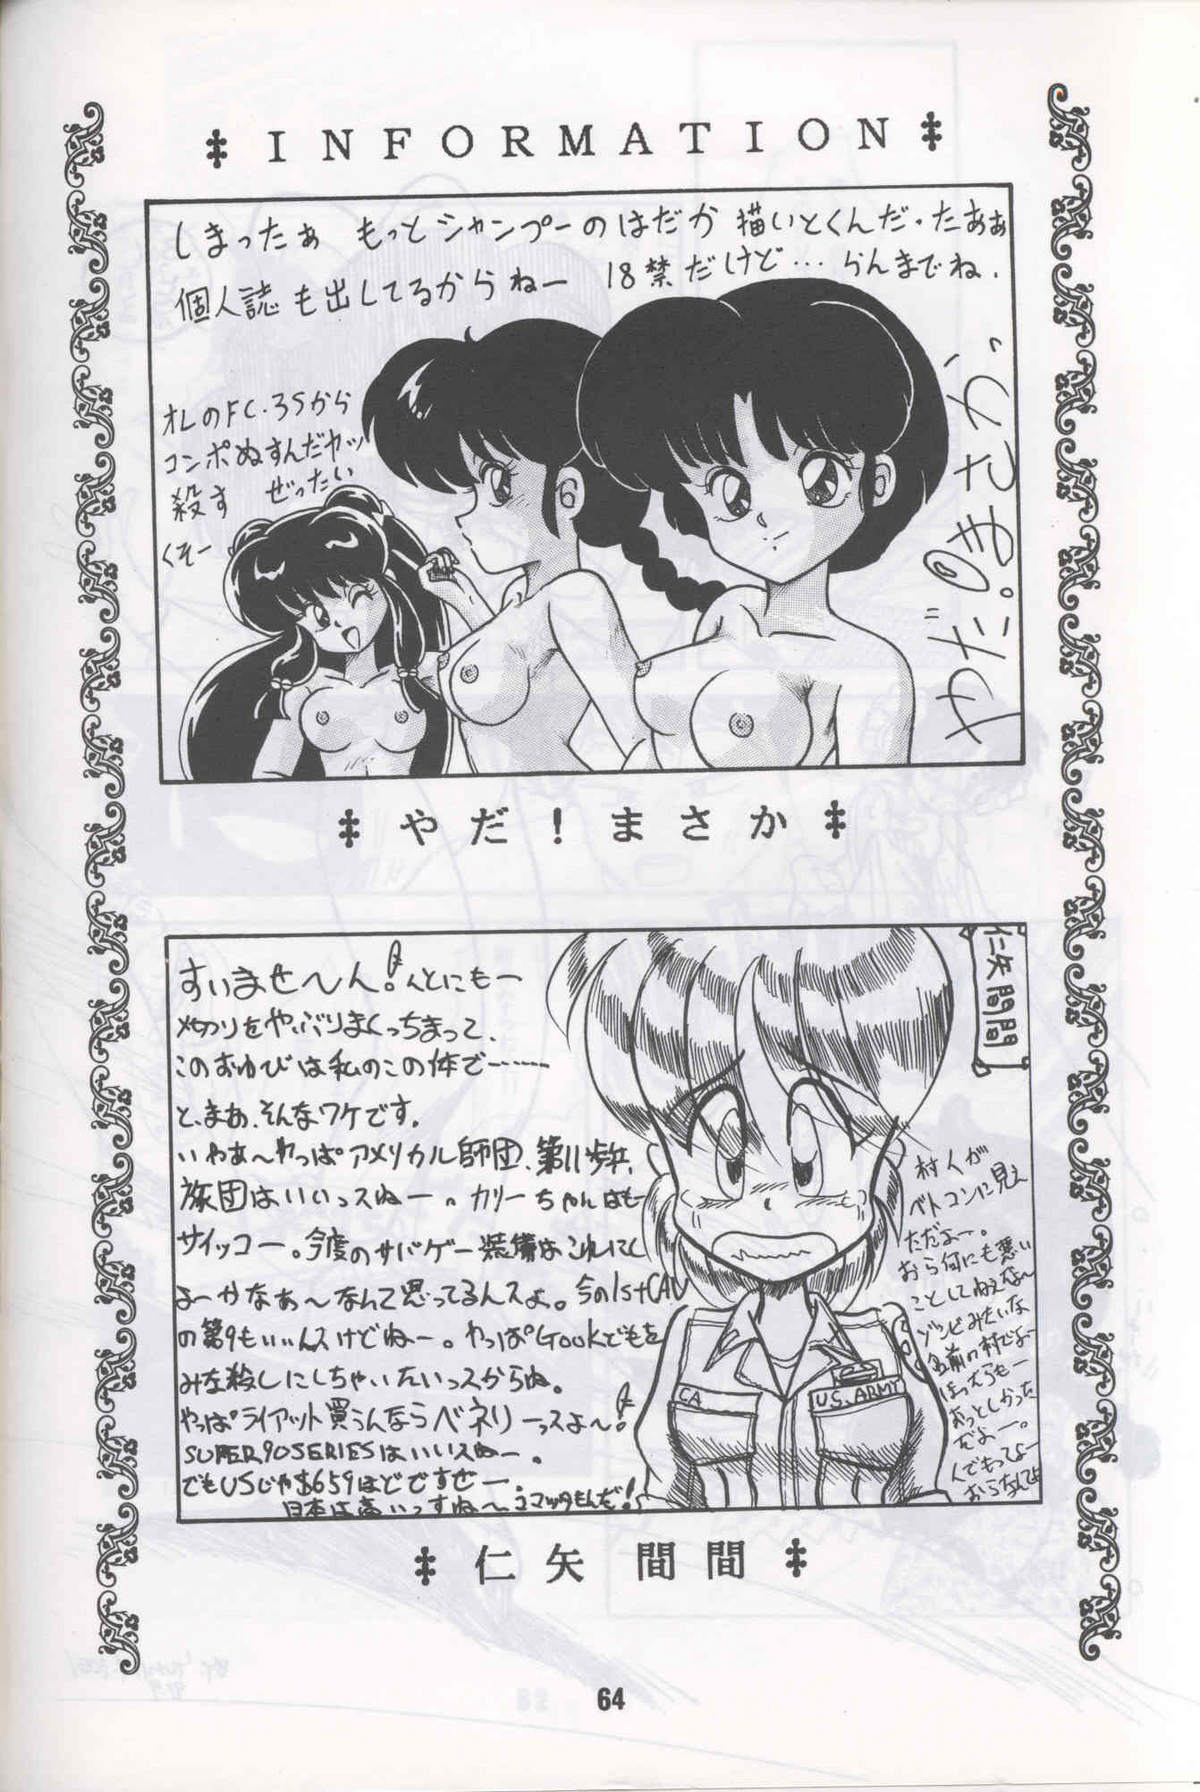 INFORMATION
しまったぁ もっとシャンプーのはだか描いとくんだ・たあぁ
個人誌も出してるからねー 18禁だけど…らんまでね.
オレのFC・3Sから
コンポぬすんだヤツ
殺す ぜったい
くそー
やだ!まさか
すいませ〜ん!んとにもー
〆切りをやぶりまくっちまって、
このおわびは私のこの体で………
と、まあ、そんなワケです。
いやあ〜やっぱアメリカル師団、第11歩兵
旅団はいいっスねー。カリーちゃんはもー
サイッコー。今度のサバゲー装備はこれにし
よーかなあ〜なんて思ってるんスよ。今の1stCAV
の第9もいいんスけどねー。やっぱGookどもを
みな殺しにしちゃいたいっスからね。
やっぱライアット買うんならベネリーっスよ〜!
SUPER90SERIESはいいスねー。
でもUSじゃ$659ほどですぜー
日本は高いっすね〜コマッタもんだ!
仁矢間間
村人が
ベトコンに見え
ただよー。
おら何にも悪い
ことしてねえな〜
ゾンビみたいな
名前の村でよー
ほったらもー
おっとしかった
だよー。
んでもってよー
おらなんてよ
CA
U.S.ARMY
仁矢 間間
64